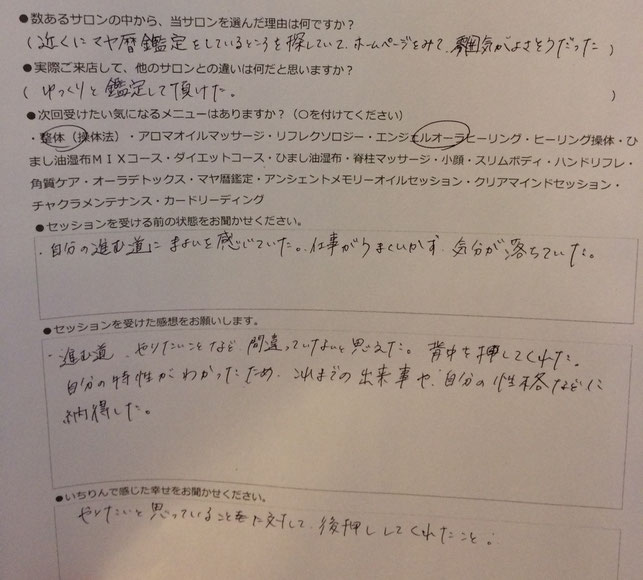 ●数あるサロンの中から、当サロンを選んだ理由は何ですか？
（近くにマヤ暦鑑定をしているところを探していて、ホームページをみて、雰囲気がよさそうだった）
●実際ご来店して、他のサロンとの違いは何だと思いますか？
（ゆっくりと鑑定して頂けた。）
●次回受けたい気になるメニューはありますか？（○を付けてください）
・整体（操体法）・アロマオイルマッサージ・リフレクソロジー・エンジェルオーラヒーリング・ヒーリング操体・ひ
まし油湿布ＭＩＸコース・ダイエットコース・ひまし油湿布・脊柱マッサージ・小顔・スリムボディ・ハンドリフレ・
角質ケア・オーラデトックス・マヤ暦鑑定・アンシェントメモリーオイルセッション・クリアマインドセッション・
チャクラメンテナンス・カードリーディング
●セッションを受ける前の状態をお聞かせください。
・自分の進む道にまよいを感じていた。仕事がうまくいかず、気分が落ちていた。
●セッションを受けた感想をお願いします。
・進む道、やりたいことなど、間違っていないと思えた。背中を押してくれた。
自分の特性がわかったため、これまでの出来事や、自分の性格などに
納得した。
●いちりんで感じた幸せをお聞かせください。
やりたいと思っていることに対して、後押ししてくれたこと。